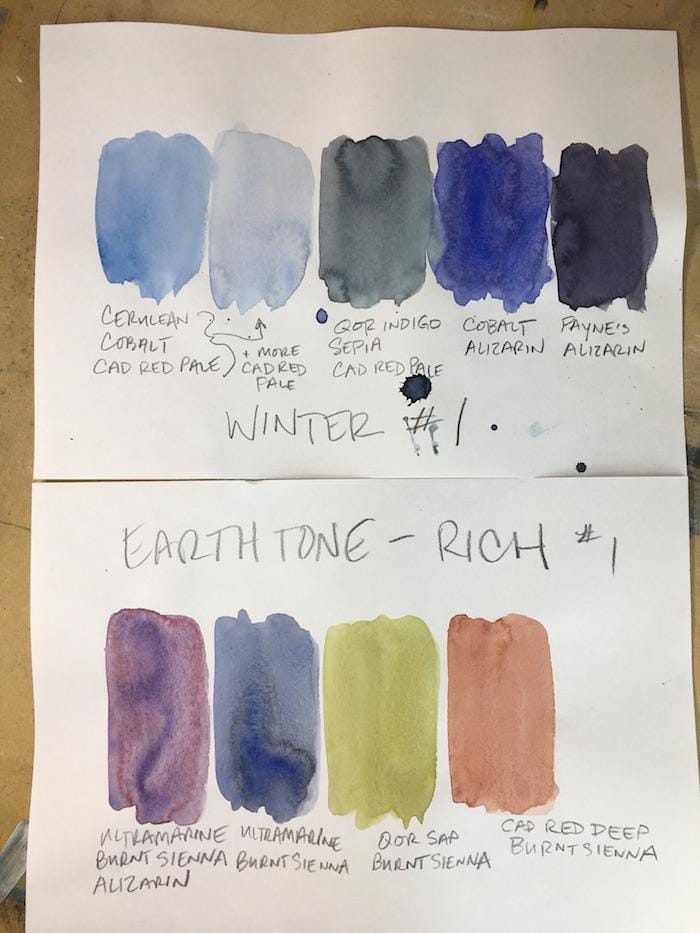 CERULEAN
COBALT
CAD RED PALE
+ MORE
CAD RED
PALE
QOR INDIGO
SEPIA
CAD RED PALE
COBALT
ALIZARIN
PAYNE'S
ALIZARIN
WINTER #1
EARTH TONE - RICH #1
ULTRAMARINE
BURNT SIENNA
ALIZARIN
ULTRAMARINE
BURNT SIENNA
QOR SAP
BURNT SIENNA
CAD RED DEEP
BURNT SIENNA